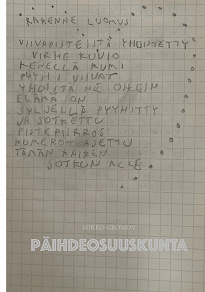 RAKENNE LUOMUS
VIIVAPISTEISTÄ YHDISTETTY
VIRHE KUVIO
KENELLÄ KUMI
PYYHI VIIVAT
YHDISTÄ NE OIKEIN
ELÄMÄ ON
SYLJELLÄ PYYHITTY
JA SOTKETTU
PISTEPIIRROS
NUMEROT AUTETTU
TÄMÄN KAIKEN
SOTKUN ALLE
MIKKO GROMOV
PÄIHDEOSUUSKUNTA